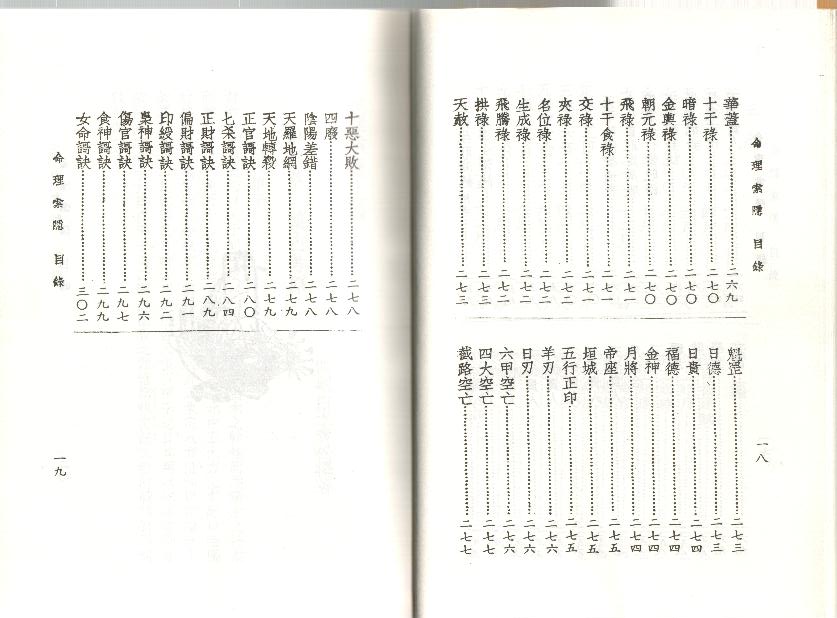 命理索隱 目錄
華蓋⋯⋯二六九
十干祿⋯⋯二七〇
暗祿⋯⋯二七〇
金輿祿⋯⋯二七〇
朝元祿⋯⋯二七〇
飛祿⋯⋯二七一
十干食祿⋯⋯二七一
交祿⋯⋯二七一
夾祿⋯⋯二七二
名位祿⋯⋯二七二
生成祿⋯⋯二七二
飛騰祿⋯⋯二七二
拱祿⋯⋯二七三
天赦⋯⋯二七三
魁罡⋯⋯二七三
日德⋯⋯二七三
日貴⋯⋯二七四
福德⋯⋯二七四
金神⋯⋯二七四
月將⋯⋯二七四
帝座⋯⋯二七五
垣城⋯⋯二七五
五行正印⋯⋯二七五
羊刃⋯⋯二七六
日刃⋯⋯二七六
六甲空亡⋯⋯二七六
四大空亡⋯⋯二七七
截路空亡⋯⋯二七七
一八
十惡大敗⋯⋯二七八
四廢⋯⋯二七八
陰陽差錯⋯⋯二七八
天羅地網⋯⋯二七九
天地轉殺⋯⋯二七九
正官謌訣⋯⋯二八〇
七殺謌訣⋯⋯二八四
正財謌訣⋯⋯二八九
偏財謌訣⋯⋯二九一
印綬謌訣⋯⋯二九二
梟神謌訣⋯⋯二九六
傷官謌訣⋯⋯二九七
食神謌訣⋯⋯二九九
女命謌訣⋯⋯三〇二
命理索隱 目錄
一九